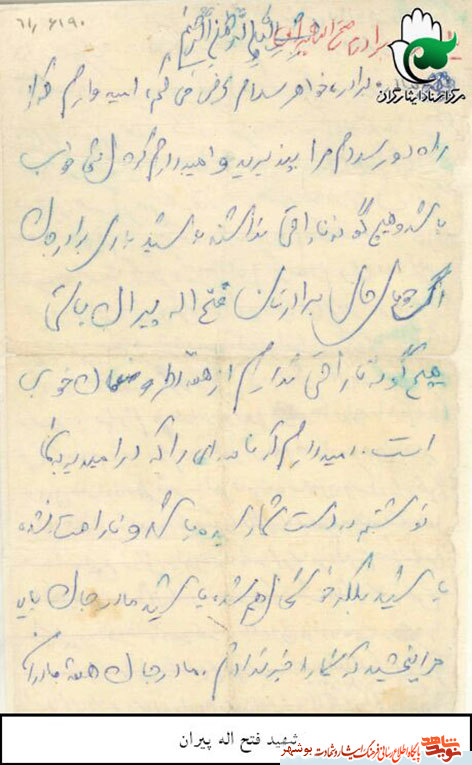 ۶۱٫۶۱۹۰
بسم الله الرحمن الرحیم
مرکز اسناد ایثارگران
برادر، خواهر سلام عرض می کنم، امید وارم که از
راه دور سلام مرا بپذیرید و امیدوارم که حالتان خوب
باشد و هیچ گونه ناراحتی نداشته باشید باری برادر جان
اگر جویای حال برادرتان فتح اله پیران باشی
هیچ گونه ناراحتی ندارم از همه نظر وضعمان خوب
است. امیدوارم که نامه ای را که در امیدیه به شما
نوشتم به دست شما رسیده باشد و ناراحت نشده
باشید بلکه خوشحال هم شده باشید مادر جان باید
مرا ببخشید که شما را خبر ندادم. مادر جان همه مادران
شهید فتح اله پیران
نوید شاهد
پایگاه اطلاع رسانی فرهنگ ایثار و شهادت بوشهر